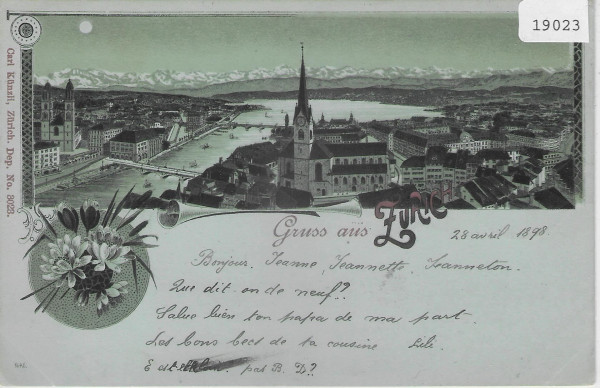 19023
Carl Künzli, Zürich. Dep. No. 3023.
Gruss aus Zürich
28 avril 1898
Bonjour. Jeanne, Jeannette, Jeanneton.
Que dit-on de neuf?
Salue bien ton papa de ma part.
Les bons becs de ta cousine Lili.
E est pas B. D?